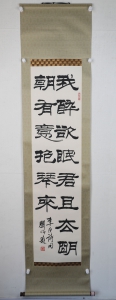 我醉欲眠君且去明
朝有意抱琴來
李白詩